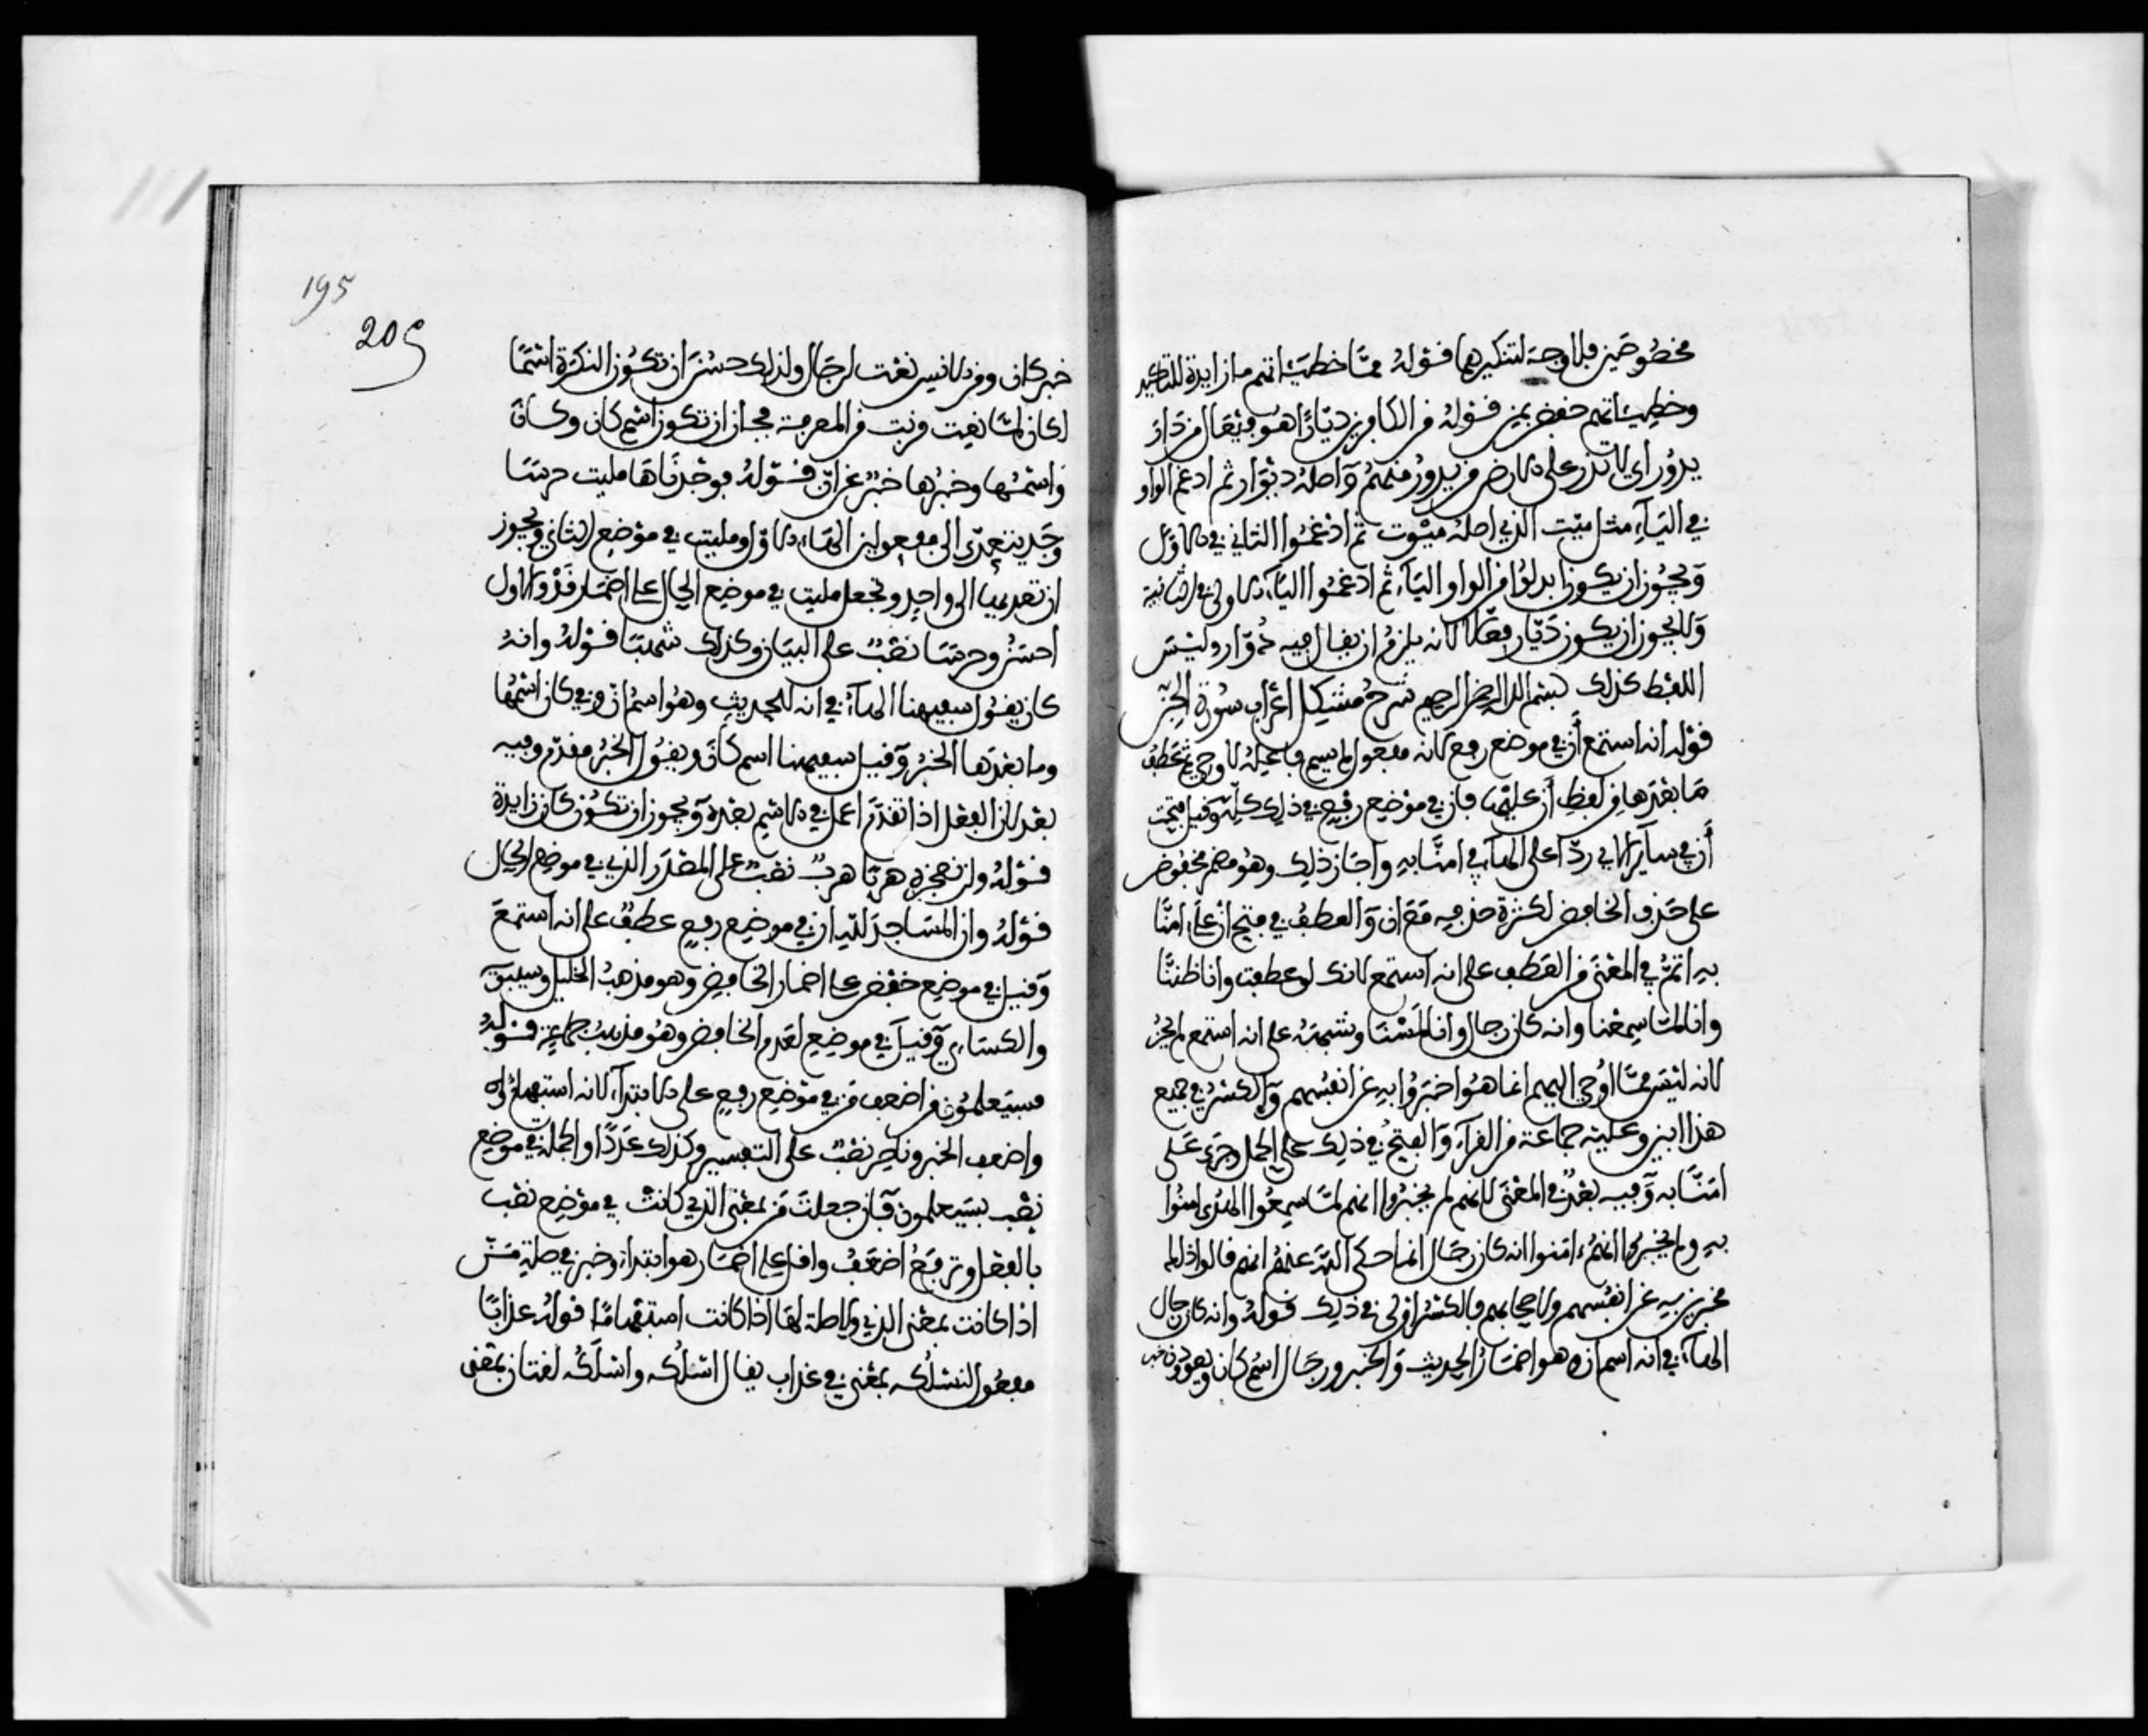 مخصوصين فلا وجه لتنكيرهما قوله مما خطيئاتهم ما زايدة للتاكيد
وخطيئاتهم خفض بمن قوله من الكافرين ديارا هو فيعال من دار
يدور اي لا تذر على الارض من يدور منهم واصله ديوار ثم ادغم الواو
في الياء مثل ميت الذي اصله ميوت ثم ادغموا الثاني في الاول
ويجوز ان يكون ابدلوا من الواو الياء ثم ادغموا الياء الاولى في الثانية
ولا يجوز ان يكون ديار فعالا لانه يلزم ان يقال فيه دوار وليس
اللفظ كذلك بسم الله الرحمن الرحيم شرح مشكل اعراب سورة الجن
قوله انه استمع أن في موضع رفع لانه مفعول لم يسم فاعله لاوحي ثم عطف
ما بعدها من لفظ أن عليها فان في موضع رفع في ذلك كله وقيل فتحت
أن في ساير الاي ردا على الهاء في امنا به واجاز ذلك وهو مضمر مخفوض
على حذف الخافض لكثرة حذفه مع ان والعطف في فتح ان على امنا
به اتم في المعنى من العطف على انه استمع لانك لو عطفت وانا ظننا
وانا لما سمعنا وانه كان رجال وانا لمسنا وشبهه على انه استمع لم يجز
لانه ليس مما اوحي اليهم انما هو اخبروا به عن انفسهم والكسر في جميع
هذا ابين وعليه جماعة من القراء والفتح في ذلك على الحمل جرى على
امنا به وفيه بعد في المعنى لانهم لم يخبروا انهم لما سمعوا الهدى امنوا
به ولم يخبروا انهم امنوا انه كان رجال انما حكى الله عنهم انهم قالوا ذلك
مخبرين به عن انفسهم ولاصحابهم فالكسر اولى في ذلك قوله وانه كان رجال
الهاء في انه اسم ان وهو اضمار الحديث والخبر ورجال اسم كان ويعوذون خبر
195
209
خبر كان ومن الانس نعت لرجال ولذلك حسن ان تكون النكرة اسما
لكان لما نعت قربت من المعرفة فجاز ان تكون اسم كان وكان
واسمها وخبرها خبر عن ان قوله فوجدناها مليت حرسا
وجد يتعدى الى مفعولين الهاء الاول ومليت في موضع الثاني ويجوز
ان تعديها الى واحد وتجعل مليت في موضع الحال على اضمار قد والاول
احسن وحرسا نصب على البيان وكذلك شهبا قوله وانه
كان يقول سفيهنا الهاء في انه للحديث وهو اسم ان وفي كان اسمها
وما بعدها الخبر وقيل سفيهنا اسم كان ويقول الخبر مقدم وفيه
بعد لان الفعل اذا تقدم اعمل في الاسم بعده ويجوز ان تكون كان زايدة
قوله ولن نعجزه هربا هربا نصب على المصدر الذي في موضع الحال
قوله وان المساجد لله ان في موضع رفع عطف على انه استمع
وقيل في موضع خفض على اضمار الخافض وهو مذهب الخليل وسيبويه
والكساءي وقيل في موضع لعدم الخافض وهو مذهب جماعة قوله
فسيعلمون من اضعف من في موضع رفع على الابتداء لانه استفهام
واضعف الخبر وناصرا نصب على التفسير وكذلك عددا والجملة في موضع
نصب بسيعلمون فان جعلت من بمعنى الذي كانت في موضع نصب
بالفعل وترفع اضعف واقل على اضمار هو ابتداء وخبر في صلة من
اذا كانت بمعنى الذي ولا صلة لها اذا كانت استفهاما قوله عذابا
مفعول لنسلكه بمعنى في عذاب يقال اسلكه واسلكه لغتان بمعنى